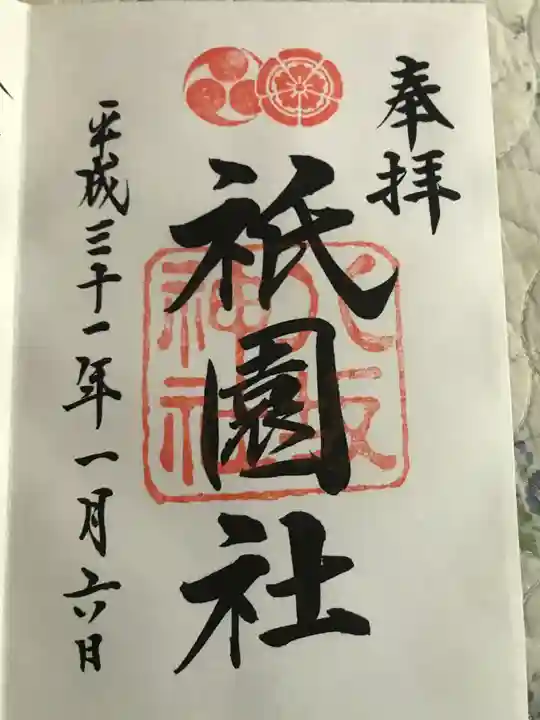 奉拝
祇園社
八坂
神社
平成三十一年一月六日